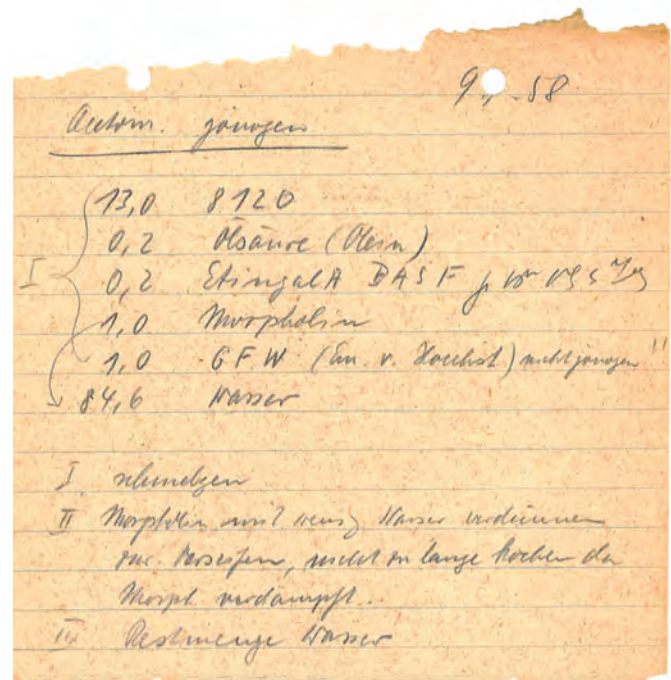 9. . 58
13,0 8120
0,2 Ölsäure (Olein)
I 0,2 Etingal A BASF
1,0 Morpholin
1,0 GFW (Em. v. Hoechst) nicht !!
84,6 Wasser
I schmelzen
II Morpholin mit wenig Wasser verdünnen
zur Verseifen, nicht zu lange kochen da
Morph. verdampft.
III Restmenge Wasser